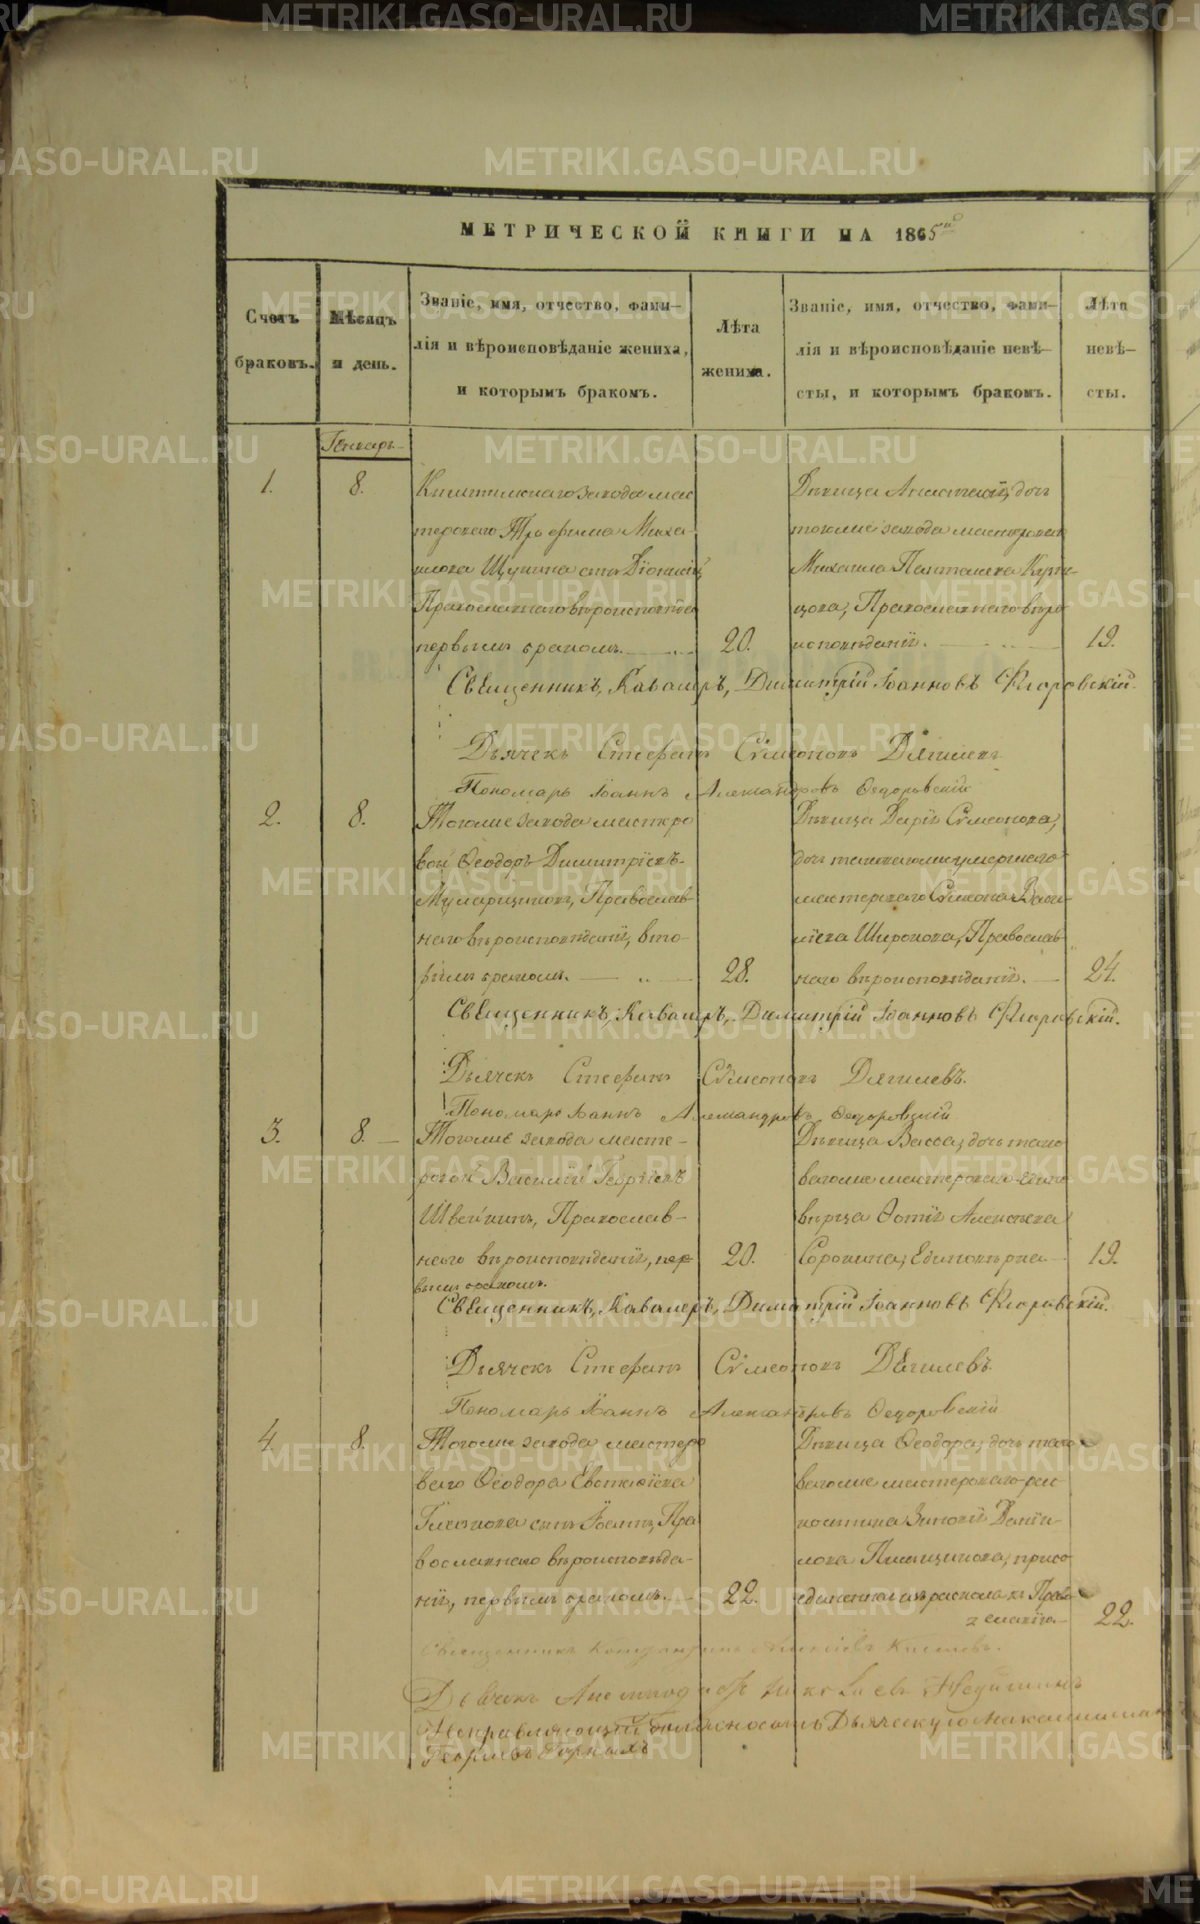 МЕТРИЧЕСКОЙ КНИГИ НА 1865й
Счетъ
браковъ.
Мѣсяцъ
и день.
Званіе, имя, отчество, фами-
лія и вѣроисповѣданіе жениха,
и которымъ бракомъ.
Лѣта
жениха.
Званіе, имя, отчество, фами-
лія и вѣроисповѣданіе невѣ-
сты, и которымъ бракомъ.
Лѣта
невѣ-
сты.
Генварь
1.
8.
Кыштымскаго завода мас
тероваго Трофима Миха-
илова Щукина сынъ Діонисій,
Православнаго вѣроисповѣда
первымъ бракомъ.
20.
Дѣвица Анастасія, дочь
тогоже завода мастероваго
Михаила Панталеева
Православнаго вѣро
исповѣданія.
19.
Священникъ, Кавалеръ, Димитрій Іоанновъ Флоровскій.
Дьячекъ Стефанъ Сѵмеоновъ Дягилевъ
Пономарь Іоаннъ Александровъ Федоровскій
2.
8.
Тогоже завода мастеро
вой Ѳеодоръ Димитріевъ
Православ-
наго вѣроисповѣданія, вто-
рымъ бракомъ.
28.
Дѣвица Дарія Сѵмеонова,
дочь таковагоже умершаго
мастероваго Сѵмеона Васи-
ліева Широкова, Православ
наго вѣроисповѣданія.
24.
Священникъ, Кавалеръ, Димитрій Іоанновъ Флоровскій.
Дьячекъ Стефанъ Сѵмеоновъ Дягилевъ.
Пономарь Іоаннъ Александровъ Федоровскій
3.
8.
Тогоже завода масте-
ровой Василій Георгіевъ
Швейкинъ, Православ-
наго вѣроисповѣданія, пер-
вымъ бракомъ.
20.
Дѣвица Васса, дочь тако
вагоже мастероваго едино
вѣрца Ѳотія Алексѣева
Сорокина, Единовѣрка.
19.
Священникъ, Кавалеръ, Димитрій Іоанновъ Флоровскій.
Дьячекъ Стефанъ Сѵмеоновъ Дягилевъ
Пономарь Іоаннъ Александровъ Федоровскій
4.
8.
Тогоже завода мастеро
ваго Ѳеодора
сынъ Іоаннъ, Пра
вославнаго вѣроисповѣда-
нія, первымъ бракомъ.
22.
Дѣвица Ѳеодора, дочь тако
вагоже мастероваго рас
кольника Зиновія Дани-
лова присо
единенная изъ раскола къ Право
славію
22.
Священникъ
Дьячекъ
Исправляющій должность Дьяческую
Георгіевъ
METRIKI.GASO-URAL.RU